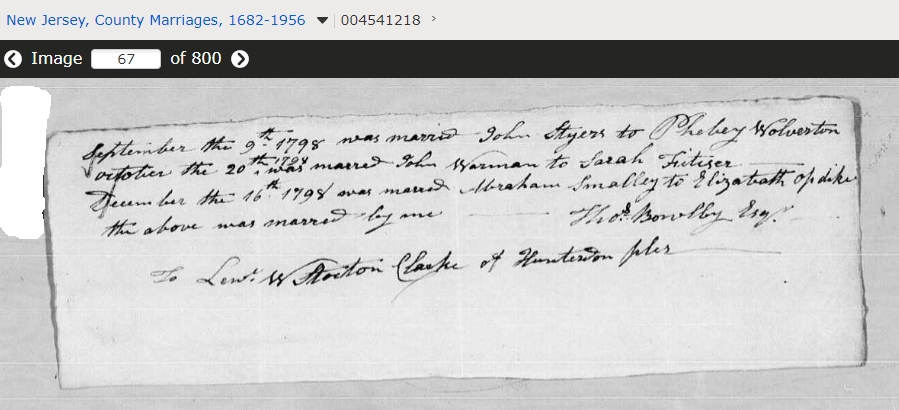 New Jersey, County Marriages, 1682-1956 004541218
Image 67 of 800
September the 9th 1798 was married John Styers to Phebey Wolverton
october the 20th 1798 was marred John Warman to Sarah
December the 16th 1798 was marred Abraham Smalley to Elizabath Opdike
the above was marred by me Thos. Bowlby Esqr.
To W Clarke of Hunterdon